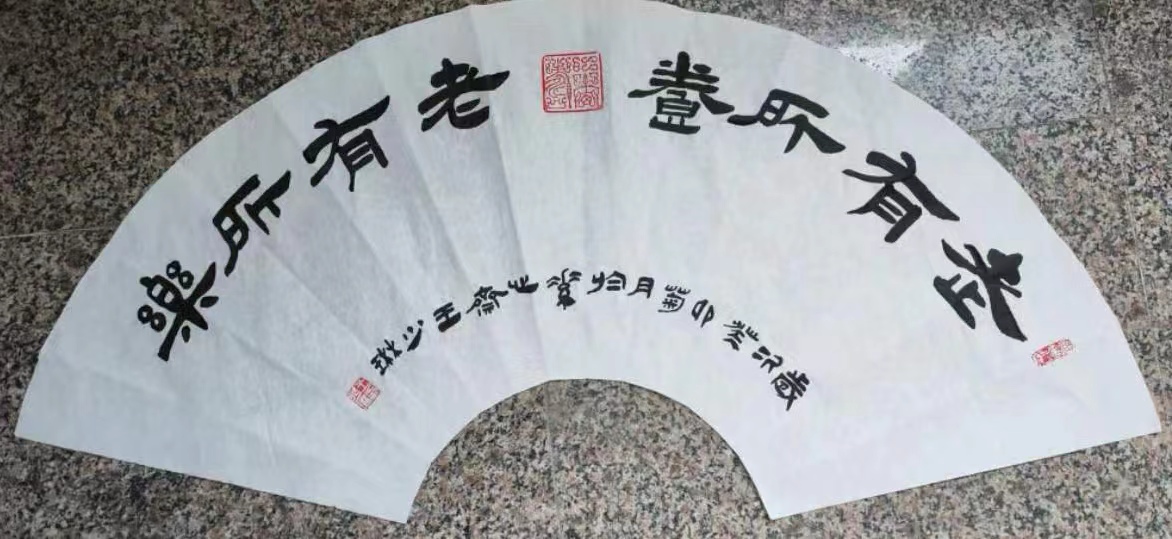 老有所養老有所樂
歲次癸卯菊月於齋王少